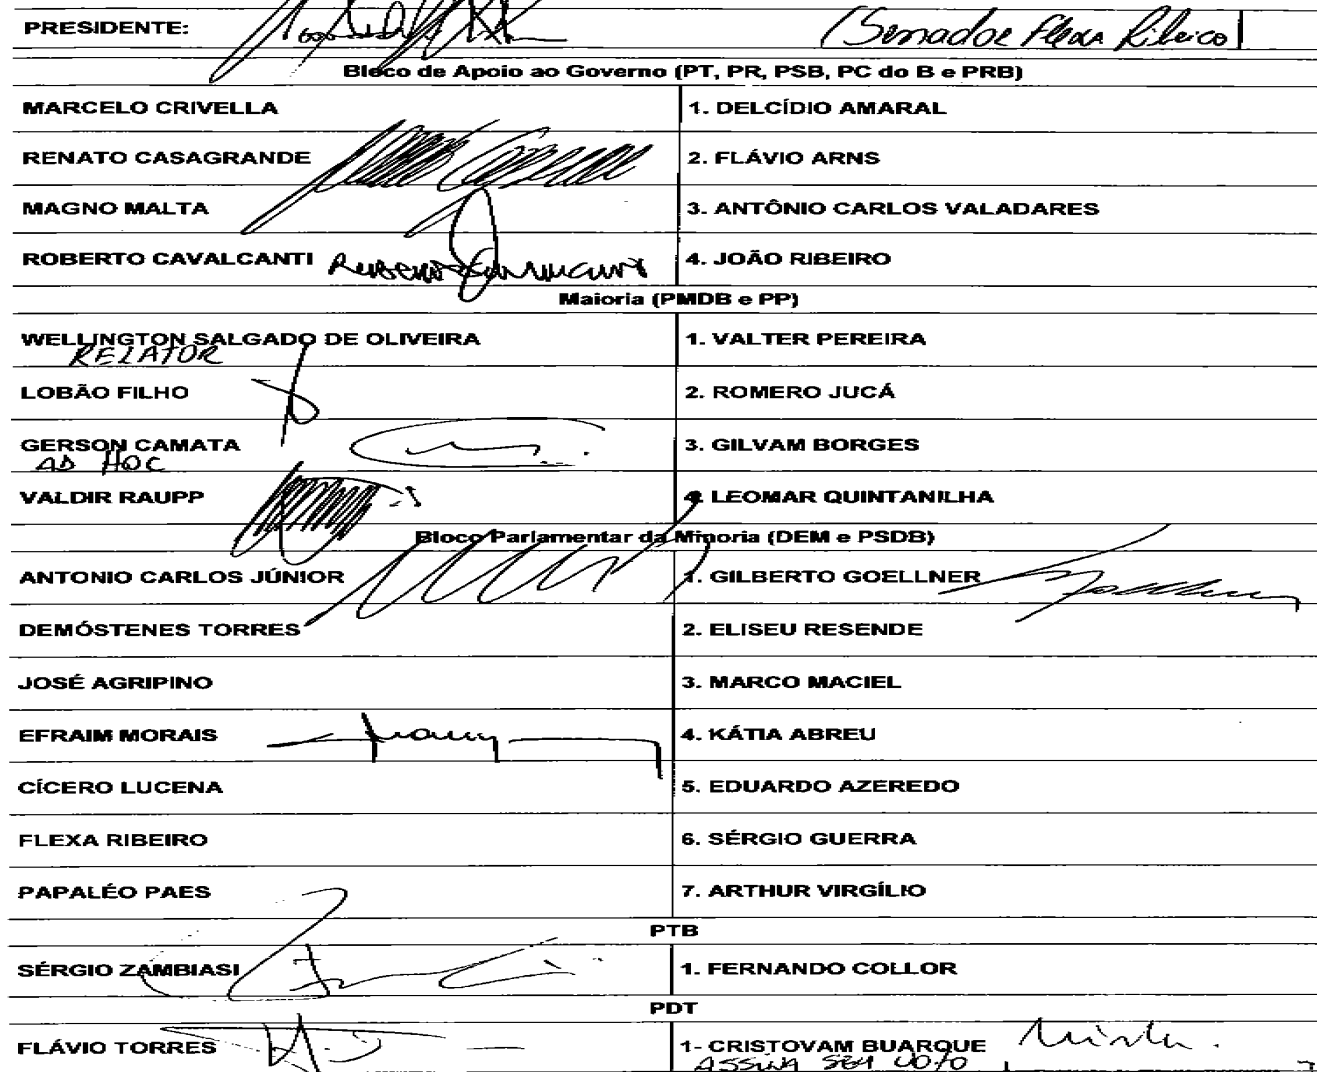 PRESIDENTE: (Senador Flexa Ribeiro)
Bloco de Apoio ao Governo (PT, PR, PSB, PC do B e PRB)
MARCELO CRIVELLA 1. DELCÍDIO AMARAL
RENATO CASAGRANDE 2. FLÁVIO ARNS
MAGNO MALTA 3. ANTÔNIO CARLOS VALADARES
ROBERTO CAVALCANTI 4. JOÃO RIBEIRO
Maioria (PMDB e PP)
WELLINGTON SALGADO DE OLIVEIRA 1. VALTER PEREIRA
RELATOR
LOBÃO FILHO 2. ROMERO JUCÁ
GERSON CAMATA 3. GILVAM BORGES
AD HOC
VALDIR RAUPP 4. LEOMAR QUINTANILHA
Bloco Parlamentar da Minoria (DEM e PSDB)
ANTONIO CARLOS JÚNIOR 1. GILBERTO GOELLNER
DEMÓSTENES TORRES 2. ELISEU RESENDE
JOSÉ AGRIPINO 3. MARCO MACIEL
EFRAIM MORAIS 4. KÁTIA ABREU
CÍCERO LUCENA 5. EDUARDO AZEREDO
FLEXA RIBEIRO 6. SÉRGIO GUERRA
PAPALÉO PAES 7. ARTHUR VIRGÍLIO
PTB
SÉRGIO ZAMBIASI 1. FERNANDO COLLOR
PDT
FLÁVIO TORRES 1- CRISTOVAM BUARQUE
ASSINA SEM VOTO